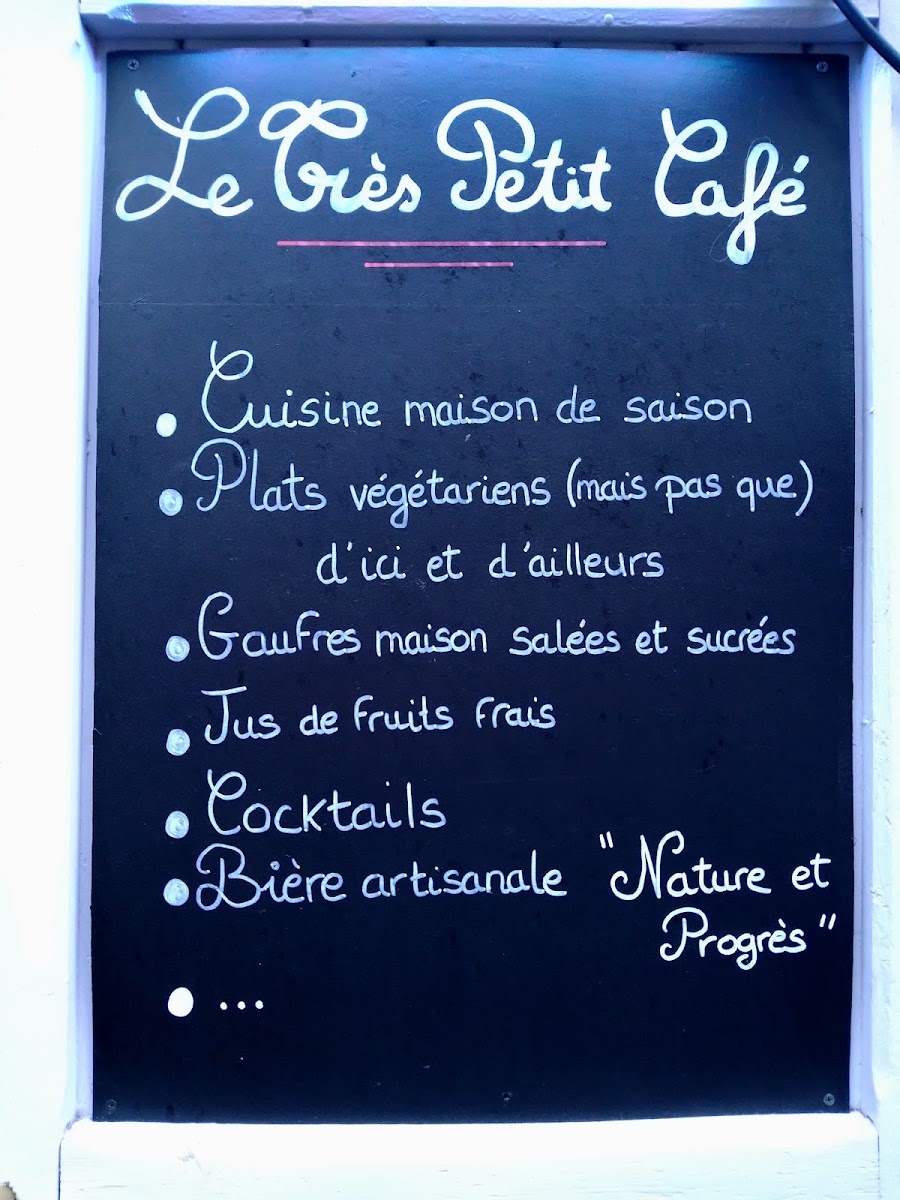 Le Très Petit Café
• Cuisine maison de saison
• Plats végétariens (mais pas que)
d'ici et d'ailleurs
• Gaufres maison salées et sucrées
• Jus de fruits frais
• Cocktails
• Bière artisanale "Nature et
Progrès"
• ...